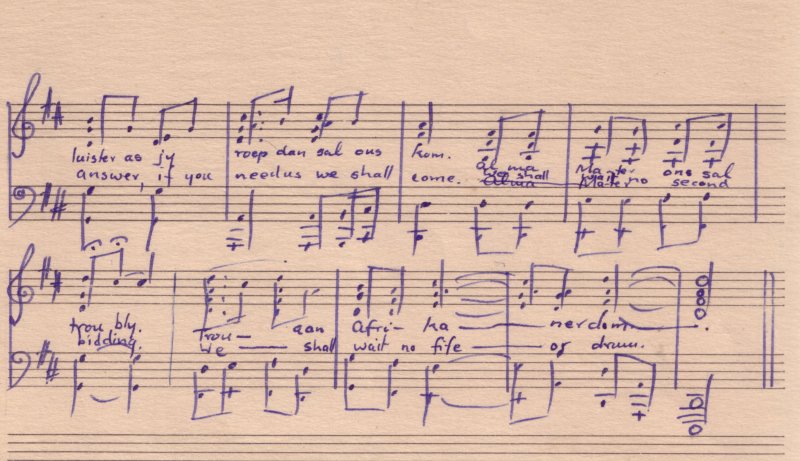 luister as jy roep dan sal ons kom. Al ma Mater ons sal
answer, if you need us we shall come. We shall wait no second
trou bly. Trou— aan Afri- ka— nerdom—.
bidding. We— shall wait no fife— or drum.